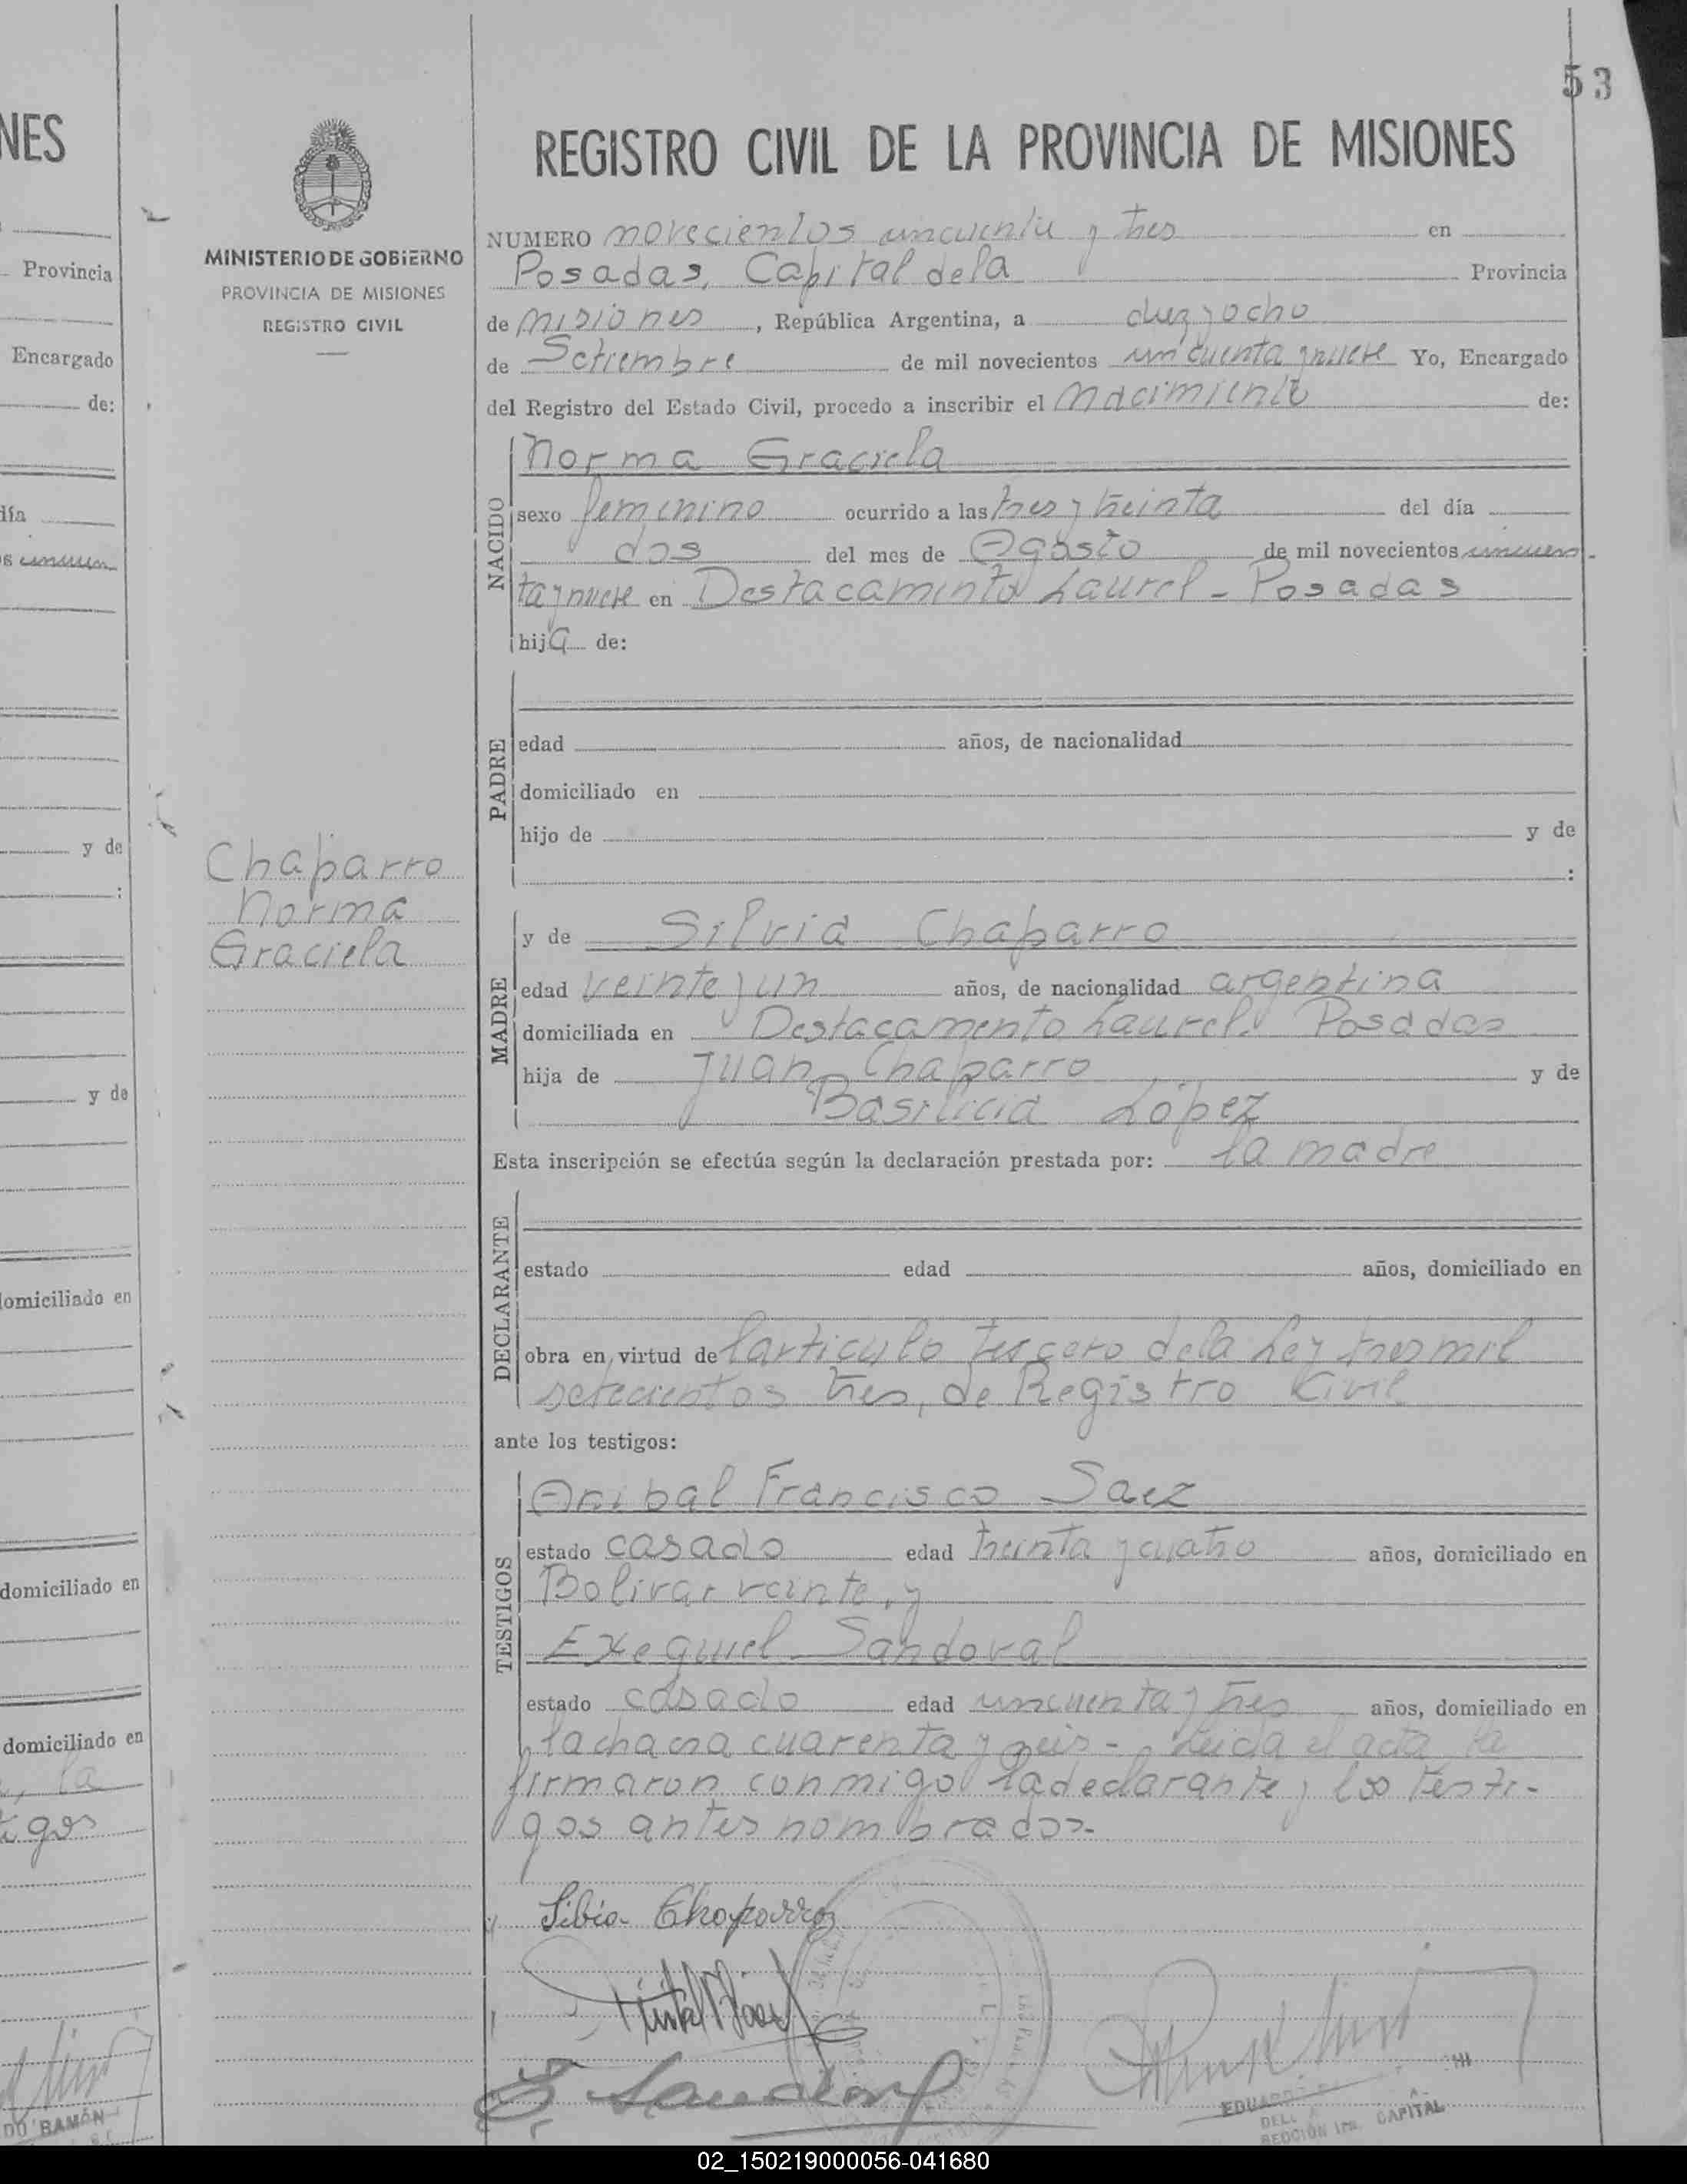 53
NES
Provincia
Encargado
de:
día
s cincuen
y de
:
y de
domiciliado en
domiciliado en
domiciliado en
, la
tigos
DO RAMÓN
MINISTERIO DE GOBIERNO
PROVINCIA DE MISIONES
REGISTRO CIVIL
Chaparro
Norma
Graciela
REGISTRO CIVIL DE LA PROVINCIA DE MISIONES
NUMERO novecientos cincuenta y tres en
Posadas, Capital de la Provincia
de Misiones, República Argentina, a diez y ocho
de Setiembre de mil novecientos cincuenta y nueve Yo, Encargado
del Registro del Estado Civil, procedo a inscribir el Nacimiento de:
NACIDO
Norma Graciela
sexo femenino ocurrido a las tres y treinta del día
dos del mes de Agosto de mil novecientos cincuen-
ta y nueve en Destacamento Laurel - Posadas
hija de:
PADRE
edad años, de nacionalidad
domiciliado en
hijo de y de
:
MADRE
y de Silvia Chaparro
edad veinte y un años, de nacionalidad argentina
domiciliada en Destacamento Laurel. Posadas
hija de Juan Chaparro y de
Basilicia López
Esta inscripción se efectúa según la declaración prestada por: la madre
DECLARANTE
estado edad años, domiciliado en
obra en virtud de l articulo tercero de la Ley tres mil
setecientos tres, de Registro Civil
ante los testigos:
TESTIGOS
Anibal Francisco Saez
estado casado edad treinta y cuatro años, domiciliado en
Bolivar veinte, y
Exequiel Sandoval
estado casado edad cincuenta y tres años, domiciliado en
la chacra cuarenta y seis - Leida el acta la
firmaron conmigo la declarante y los testi-
gos antes nombrados-
Silvia Chaparro
E. Sandoval
EDUARDO
SECCIÓN 1ra. CAPITAL
02_150219000056-041680